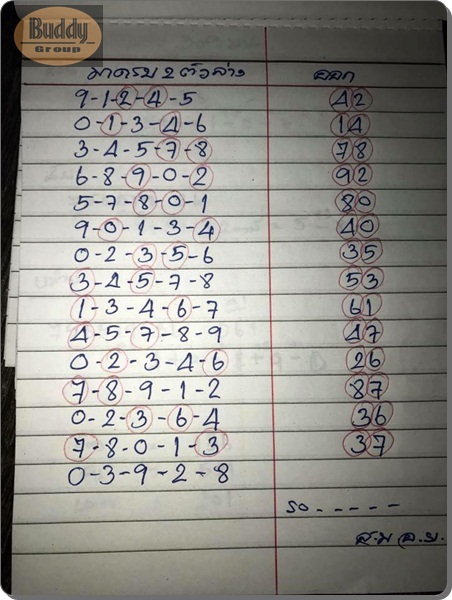 Buddy
Group
มาครบ 2 ตัวล่าง ออก
9-1-2-4-5 42
0-1-3-4-6 14
3-4-5-7-8 78
6-8-9-0-2 92
5-7-8-0-1 80
9-0-1-3-4 40
0-2-3-5-6 35
3-4-5-7-8 53
1-3-4-6-7 61
4-5-7-8-9 47
0-2-3-4-6 26
7-8-9-1-2 87
0-2-3-6-4 36
7-8-0-1-3 37
0-3-9-2-8
รอ - - - - -
ส.ม